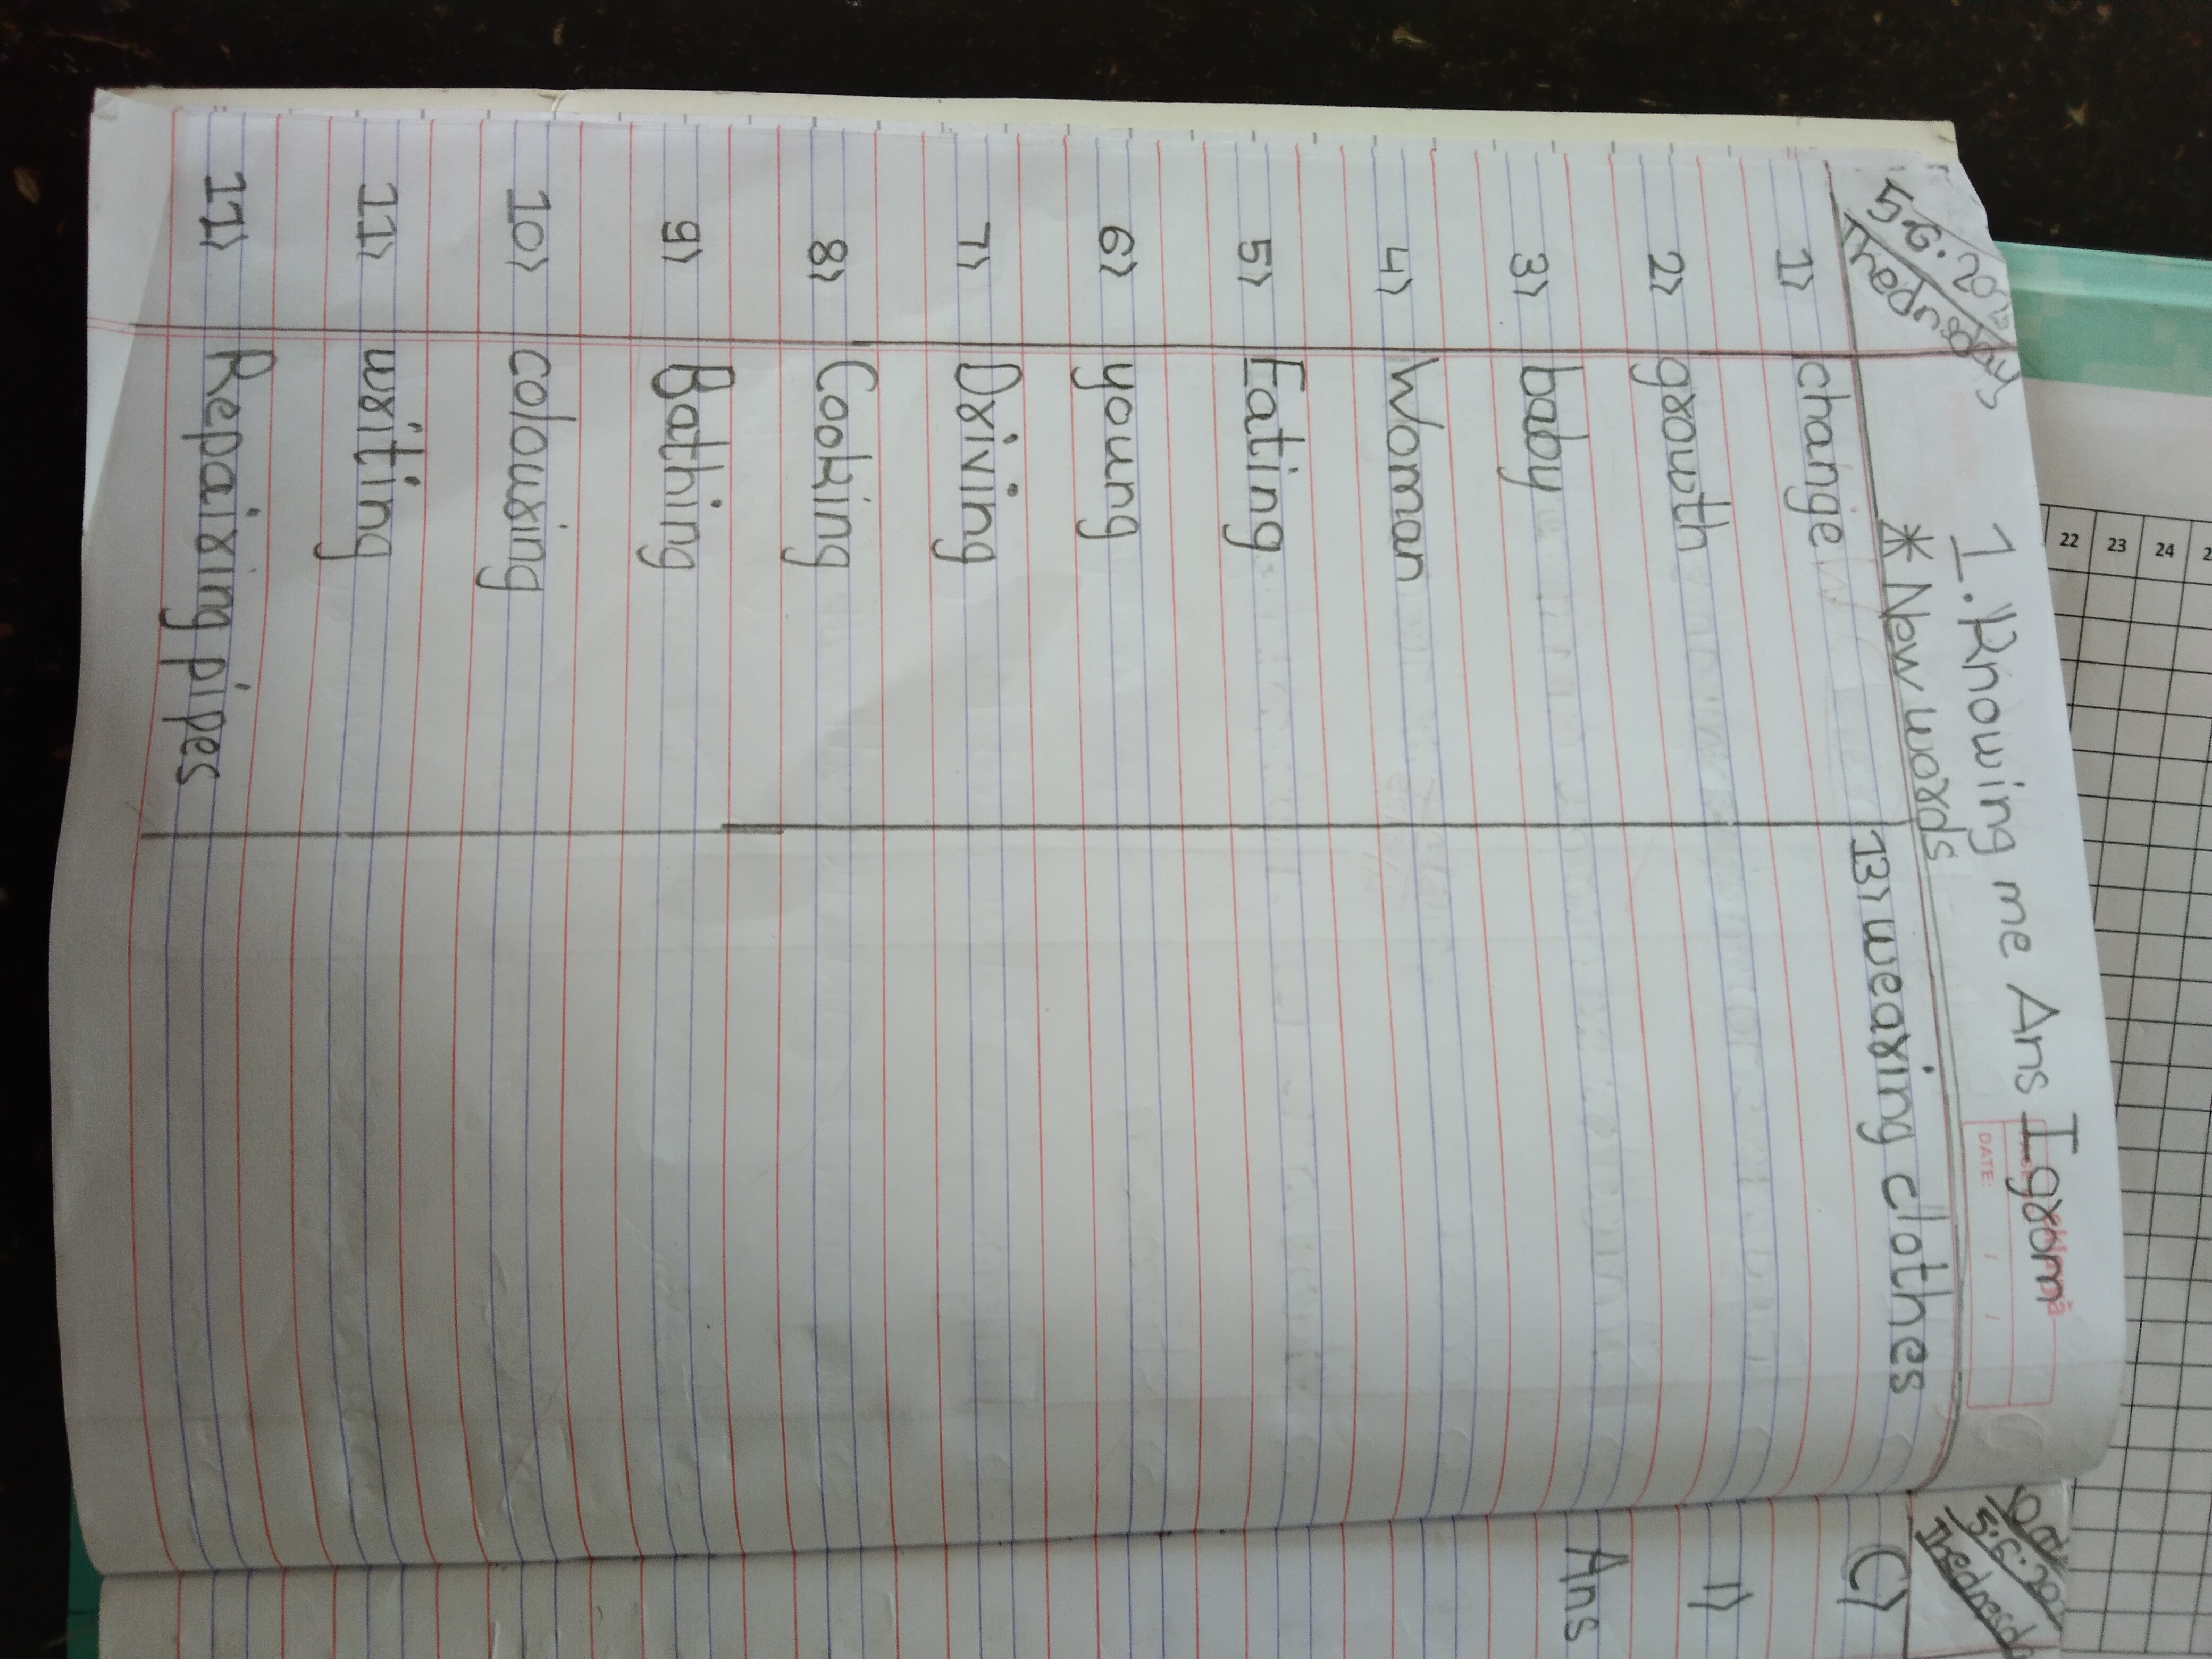 5.6.20
Thedrsday
1. Knowing me Ans I grom
* New words
1) change
2) growth
3) baby
4) Woman
5) Eating
6) young
7) Driving
8) Cooking
9) Bathing
10) colouring
11) writing
11) Repairing pipes
13) wearing clothes
DATE: / /
22 23 24
5.6.20
Thedresd
C)
1)
Ans